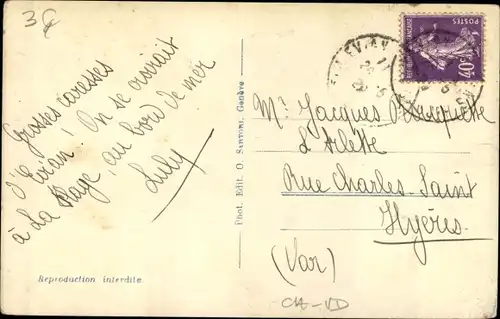 3€
Grosses caresses
d'Evian! On se croirait
à La Plage, au bord de mer
Luly
Reproduction interdite
Phot. Edit. O. Sartori, Genève
REPUBLIQUE FRANÇAISE
POSTES
40c
Mr Jacques
Rue Charles-Saint
Hyères
(Var)